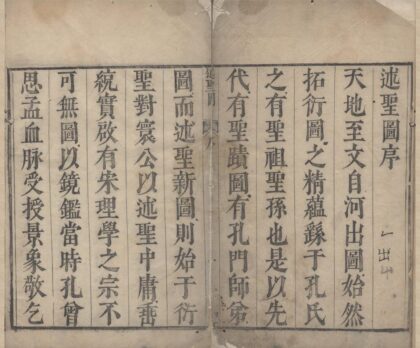 述聖圖序
天地至文自河出圖始然
拓衍圖之精蘊繇于孔氏
之有聖祖聖孫也是以先
代有聖蹟圖有孔門師弟
述聖圖
圖而述聖新圖則始于衍
聖對寰公以述聖中庸垂
統實啟有宋理學之宗不
可無圖以鏡鑑當時孔曾
思孟血脉受授景象敬乞